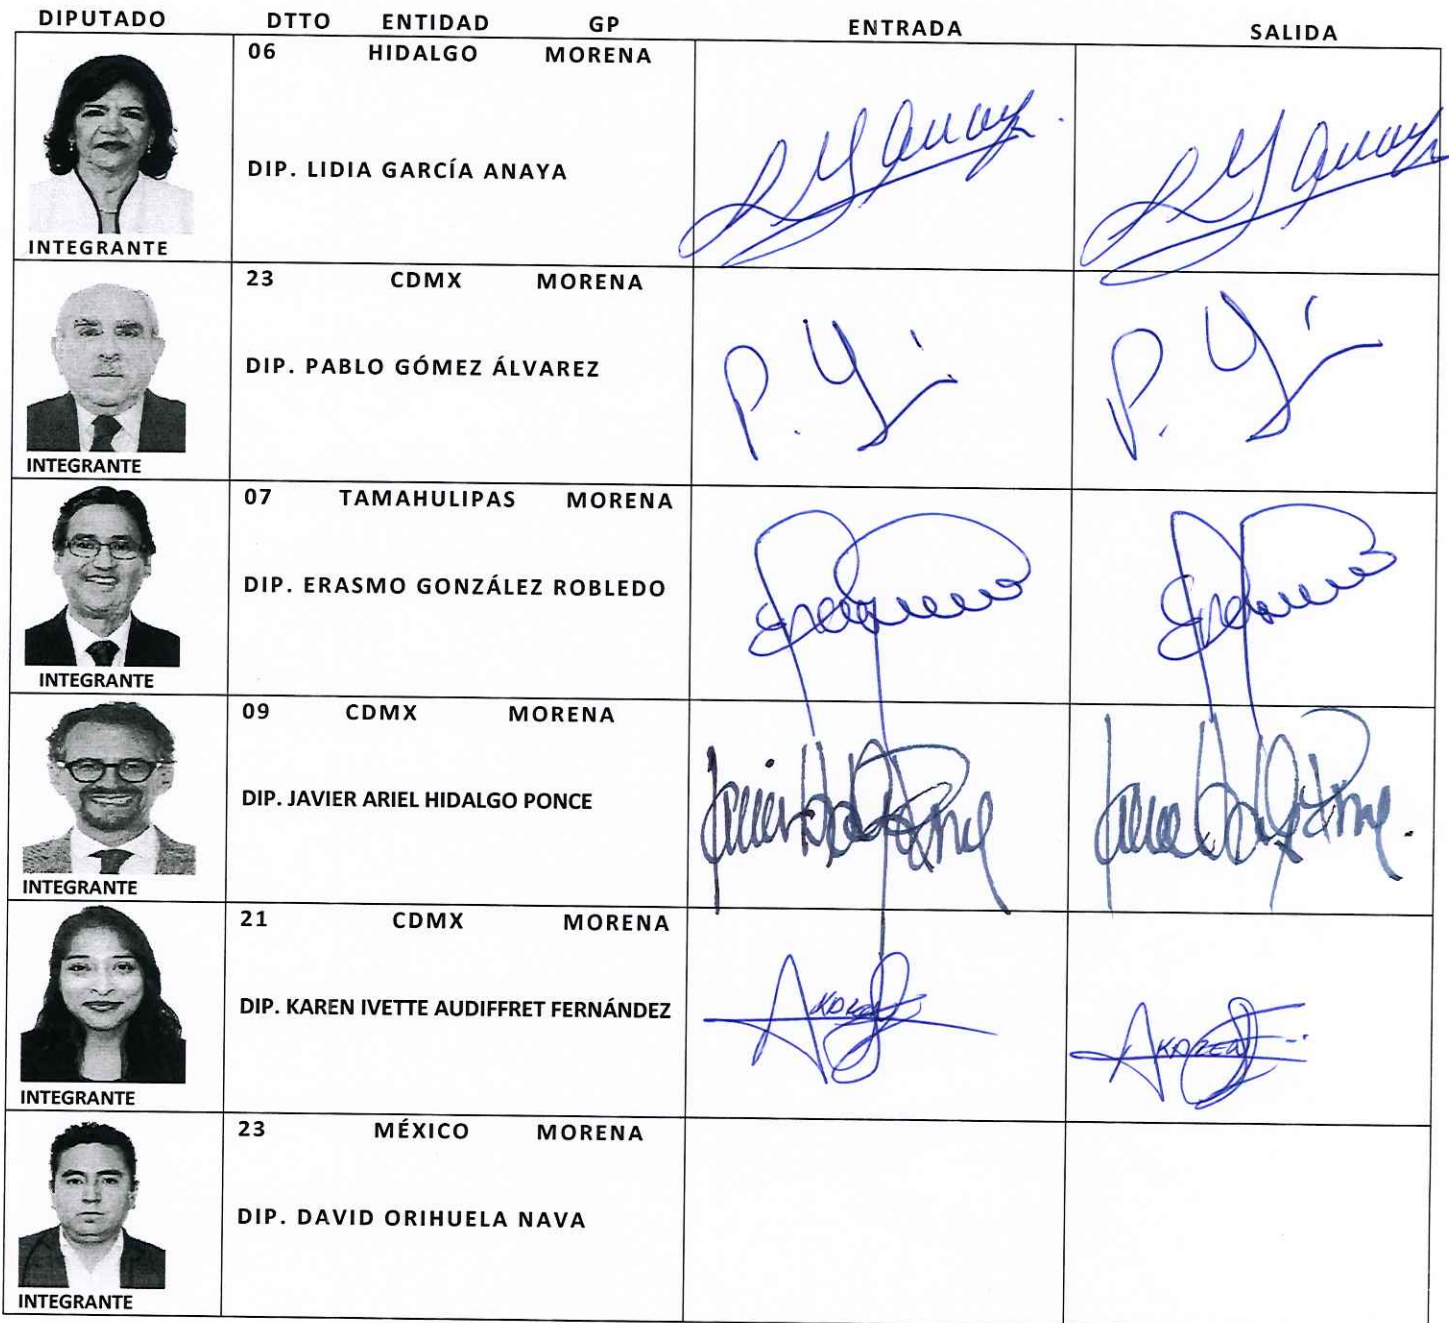 DIPUTADO DTTO ENTIDAD GP ENTRADA SALIDA
06 HIDALGO MORENA
DIP. LIDIA GARCÍA ANAYA
INTEGRANTE
23 CDMX MORENA
DIP. PABLO GÓMEZ ÁLVAREZ
P.
P.
INTEGRANTE
07 TAMAHULIPAS MORENA
DIP. ERASMO GONZÁLEZ ROBLEDO
INTEGRANTE
09 CDMX MORENA
DIP. JAVIER ARIEL HIDALGO PONCE
INTEGRANTE
21 CDMX MORENA
DIP. KAREN IVETTE AUDIFFRET FERNÁNDEZ
KAREN
KAREN
INTEGRANTE
23 MÉXICO MORENA
DIP. DAVID ORIHUELA NAVA
INTEGRANTE